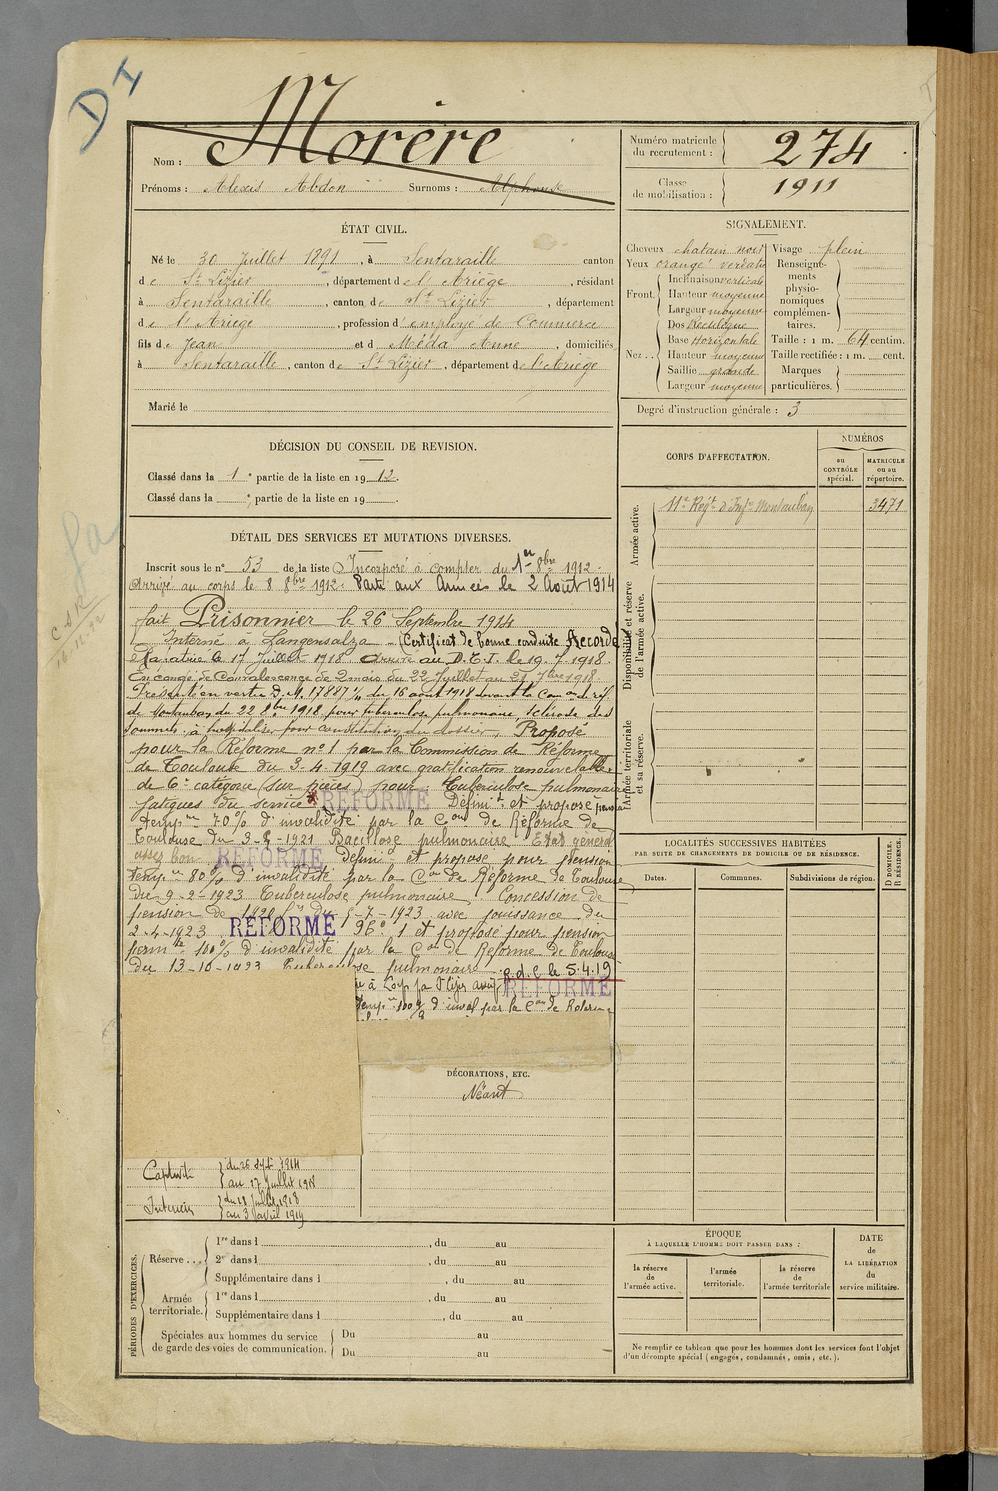 D I
Nom : Morère
Prénoms : Alexis Abdon Surnoms : Alphonse
Numéro matricule du recrutement : 274
Classe de mobilisation : 1911
ÉTAT CIVIL.
Né le 30 Juillet 1891, à Sentaraille canton
de St Lizier, département de l'Ariège, résidant
à Sentaraille, canton de St Lizier, département
de l'Ariege, profession d'employé de Commerce
fils de Jean et de Méda Anne, domiciliés
à Sentaraille, canton de St Lizier, département de l'Ariège
Marié le
SIGNALEMENT.
Cheveux chatain noir Visage plein
Yeux orangé verdatre
Front. Inclinaison verticale
Hauteur moyenne
Largeur moyenne
Nez.. Dos Rectiligne
Base Horizontale
Hauteur moyenne
Saillie grande
Largeur moyenne
Renseignements physionomiques complémentaires.
Taille : 1 m. 64 centim.
Taille rectifiée : 1 m. cent.
Marques particulières.
Degré d'instruction générale : 3
DÉCISION DU CONSEIL DE REVISION.
Classé dans la 1e partie de la liste en 1912.
Classé dans la e partie de la liste en 19
DÉTAIL DES SERVICES ET MUTATIONS DIVERSES.
Inscrit sous le n° 53 de la liste Incorporé à compter du 1er 8bre 1912.
Arrivé au corps le 8 8bre 1912. Parti aux Armées le 2 Août 1914
fait Prisonnier le 26 Septembre 1914
Interné à Langensalza - (Certificat de bonne conduite Accordé
Rapatrié le 17 Juillet 1918. Arrivé au D.T.I. le 19.7.1918.
En congé de Convalescence de 2 mois du 22 Juillet au 21 7bre 1918
Présenté en vertu D.M. 17887 du 16 août 1918 devant la Com on de réf
de Montauban du 22 8bre 1918 pour tuberculose pulmonaire, sclérose des
sommets, à hospitaliser pour constitution du dossier. Proposé
pour la Réforme n° 1 par la Commission de Réforme
de Toulouse du 3-4-1919 avec gratification renouvelable
de 6e catégorie (sur pièces) pour Tuberculose pulmonaire
fatigues du service RÉFORMÉ Définit et proposé pension
temp re 70% d'invalidité par la Con de Réforme de
Toulouse du 3-8-1921 Bacillose pulmonaire Etat général
assez bon RÉFORMÉ Définit et proposé pour pension
temp re 80% d'invalidité par la Con de Réforme de Toulouse
du 9-2-1923 Tuberculose pulmonaire. Concession de
pension de 1920 du 5-7-1923 avec jouissance du
2-4-1923 RÉFORMÉ 1 et proposé pour pension
perm te 100% d'invalidité par la Con de Réforme de Toulouse
du 13-10-1923 Tuberculose pulmonaire R.d.C le 5.4.19
RÉFORMÉ
temp re 100% d'inval par la Con de Réforme
DÉCORATIONS, ETC.
Néant
Captivité du 26 Sept 1914
au 17 Juillet 1918
Intérieur du 18 Juillet 1918
au 3 Avril 1919
CORPS D'AFFECTATION.
NUMÉROS
au CONTRÔLE spécial.
MATRICULE ou au répertoire.
Armée active.
11e Régt d'Infie Montauban 3471
Disponibilité et réserve de l'armée active.
Armée territoriale et sa réserve.
LOCALITÉS SUCCESSIVES HABITÉES
PAR SUITE DE CHANGEMENTS DE DOMICILE OU DE RÉSIDENCE.
Dates. Communes. Subdivisions de région.
D DOMICILE. R RÉSIDENCE.
PÉRIODES D'EXERCICES.
Réserve... 1re dans l , du au
2e dans l , du au
Supplémentaire dans l , du au
Armée territoriale. 1re dans l , du au
Supplémentaire dans l , du au
Spéciales aux hommes du service de garde des voies de communication.
Du au
Du au
ÉPOQUE
À LAQUELLE L'HOMME DOIT PASSER DANS :
la réserve de l'armée active.
l'armée territoriale.
la réserve de l'armée territoriale
DATE de LA LIBÉRATION du service militaire.
Ne remplir ce tableau que pour les hommes dont les services font l'objet
d'un décompte spécial (engagés, condamnés, omis, etc.).